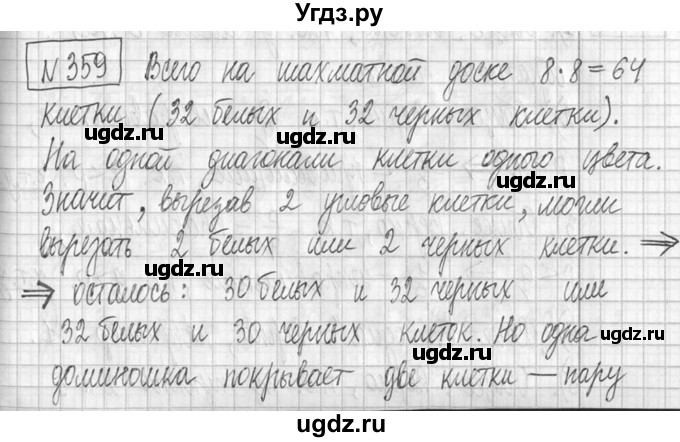 Угдз.ру
№359 Всего на шахматной доске 8·8=64
клетки (32 белых и 32 черных клетки).
На одной диагонали клетки одного цвета.
Значит, вырезав 2 угловые клетки, могли
вырезать 2 белых или 2 черных клетки. ⇒
⇒ осталось: 30 белых и 32 черных или
32 белых и 30 черных клеток. Но одна
доминошка покрывает две клетки — пару
ugdz.ru
ugdz.ru
ugdz.ru
ugdz.ru
ugdz.ru
ugdz.ru
ugdz.ru
ugdz.ru
ugdz.ru
ugdz.ru
ugdz.ru